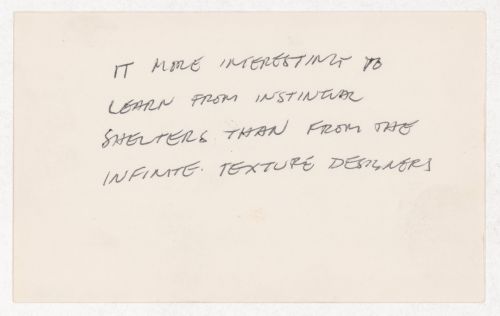 IT MORE INTERESTING TO
LEARN FROM INSTINTUAL
SHELTERS THAN FROM THE
INFINITE TEXTURE DESIGNERS